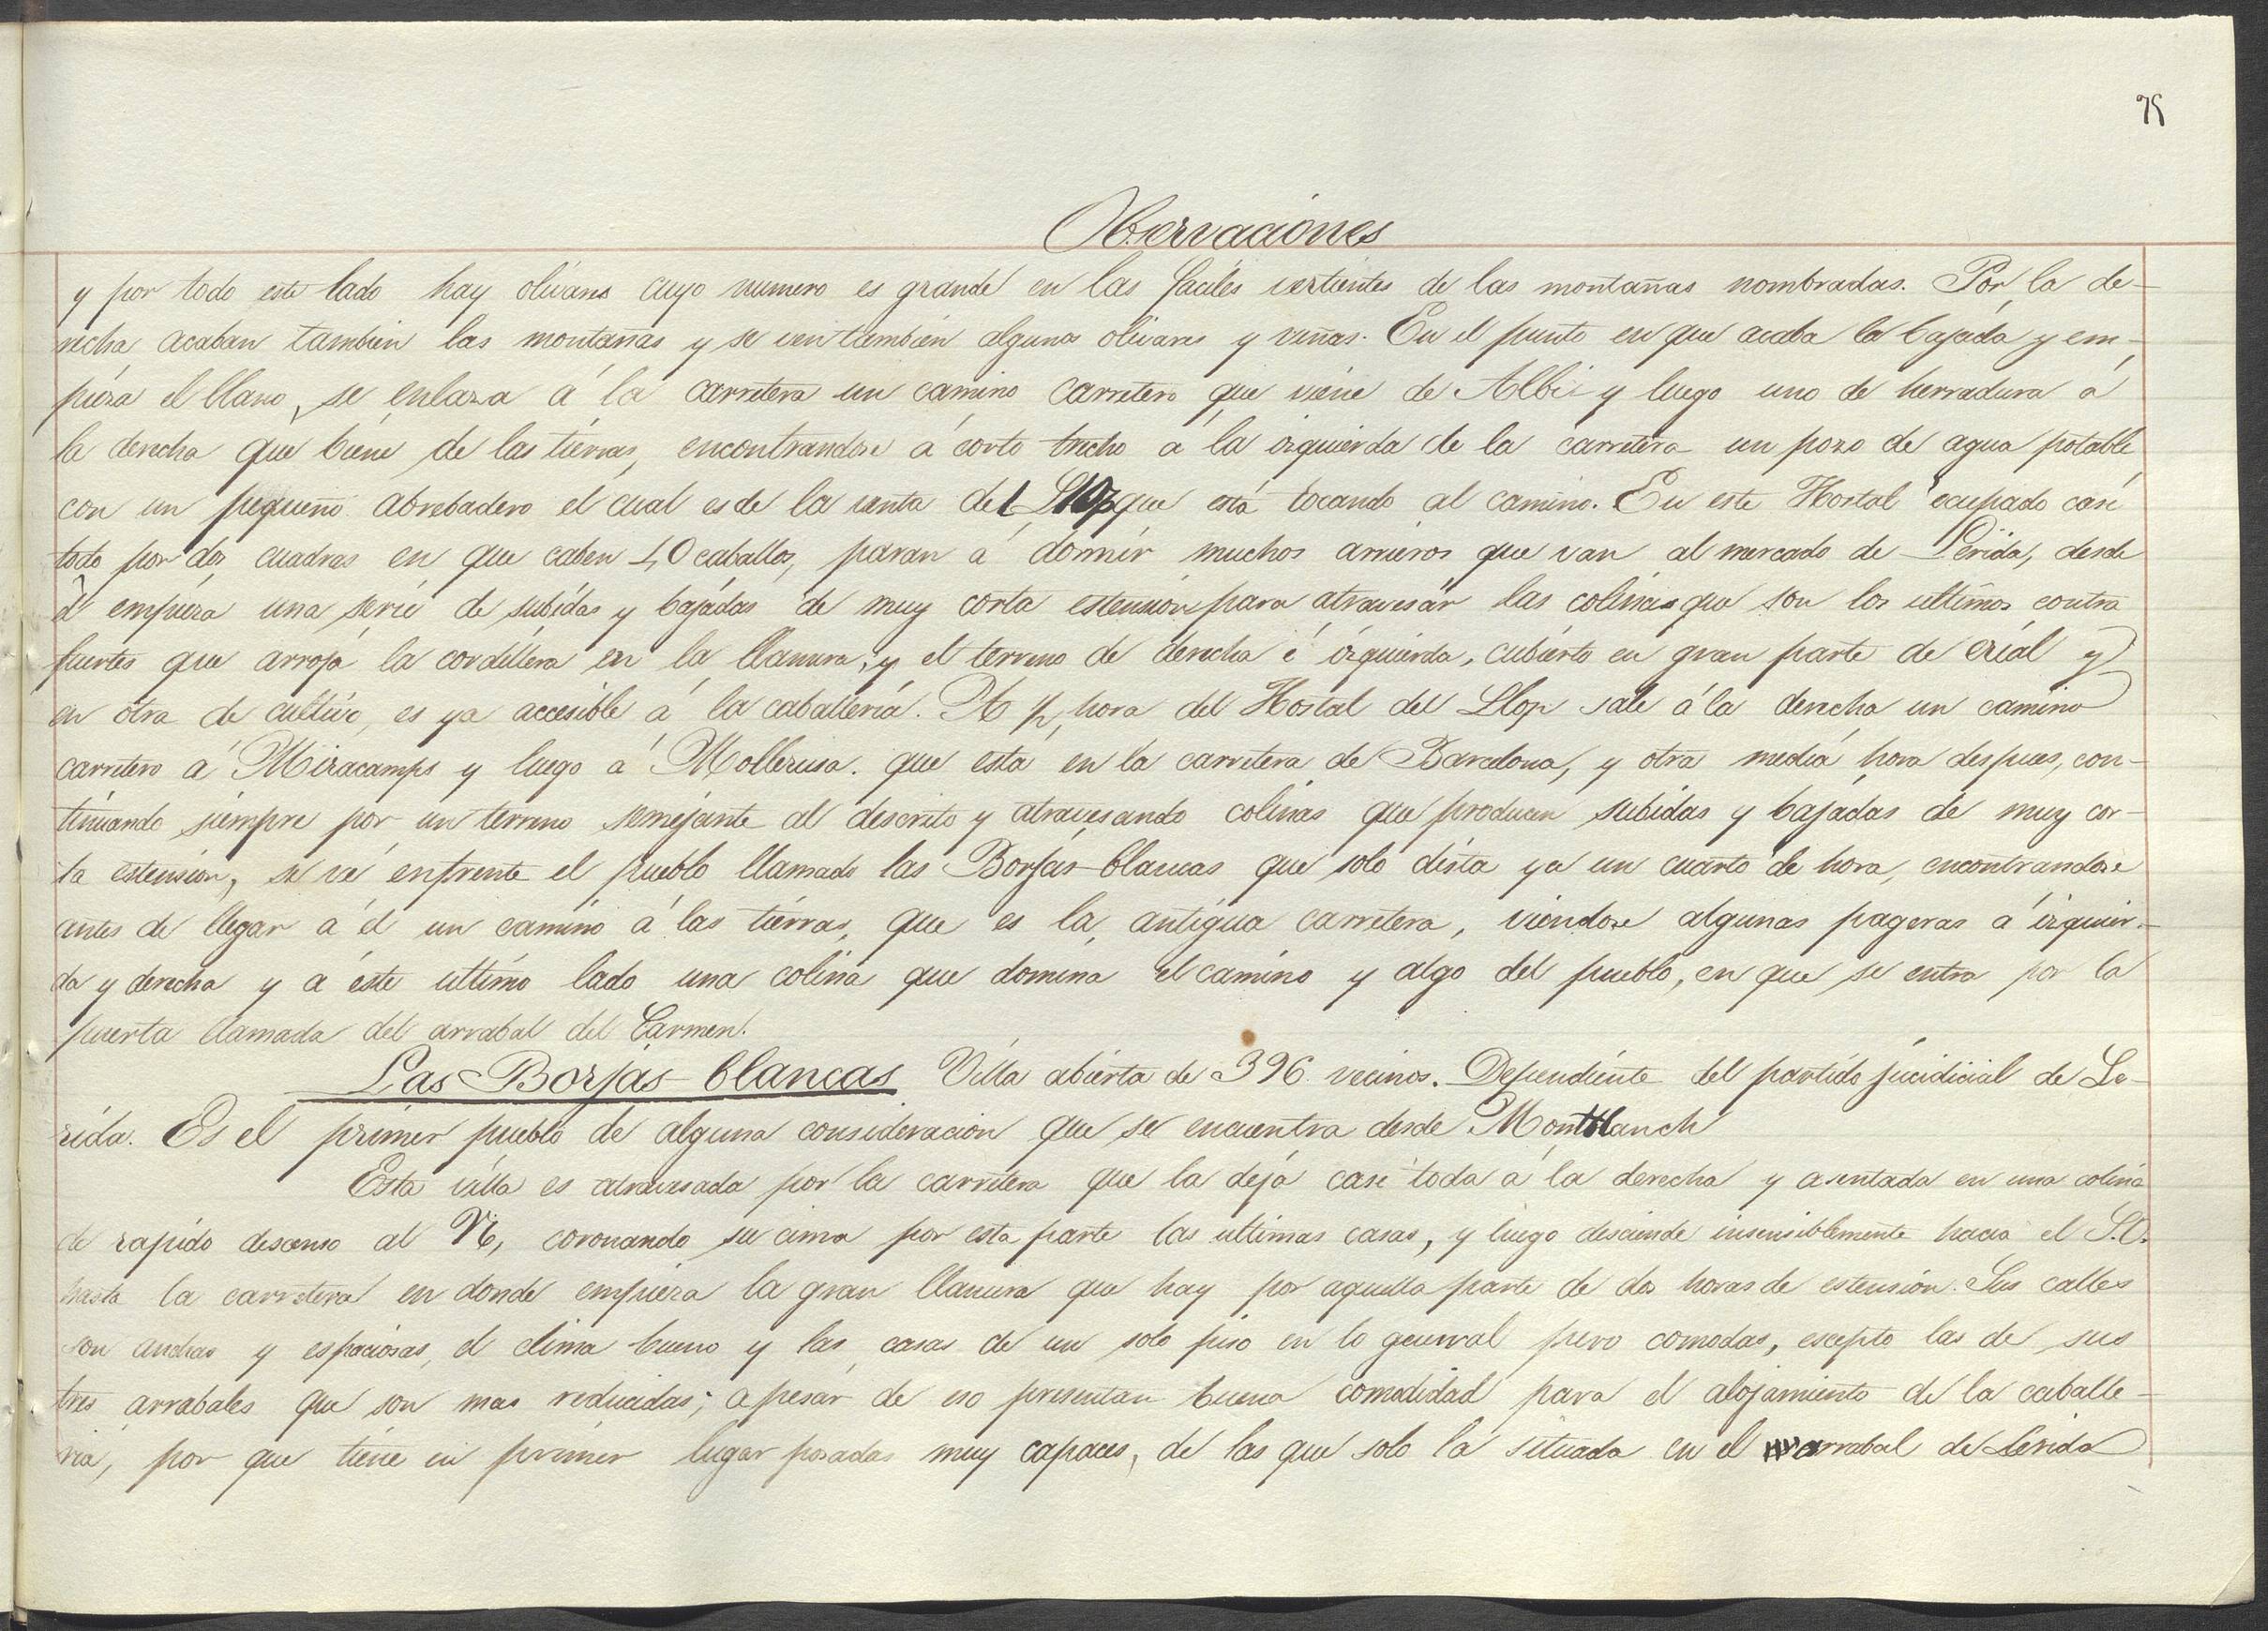 75
Observaciones
y por todo este lado hay olivares cuyo numero es grande en las faciles vertientes de las montañas nombradas. Por la de-
recha acaban tambien las montañas y se ven tambien algunos olivares y viñas. En el punto en que acaba la bajada y em-
pieza el llano, se enlaza á la carretera un camino carretero que viene de Albi y luego uno de herradura á
la derecha que biene de las tierras, encontrandose á corto trecho á la izquierda de la carretera un pozo de agua potable
con un pequeño abrebadero el cual es de la venta del Llop que está tocando al camino. En este Hostal ocupado casi
todo por dos cuadras en que caben 40 caballos, paran á dormir muchos arrieros que van al mercado de Lerida, desde
él empieza una serie de subidas y bajadas de muy corta estension para atravesar las colinas que son los ultimos contra
fuertes que arroja la cordillera en la llanura, y el terreno de derecha é izquierda, cubierto en gran parte de erial y
en otra de cultivo, es ya accesible á la caballeria. A hora del Hostal del Llop sale á la derecha un camino
carretero á Miracamps y luego á Mollerusa. que está en la carretera de Barcelona, y otra media hora despues, con-
tinuando siempre por un terreno semejante al descrito y atravesando colinas que producen subidas y bajadas de muy cor-
ta estension, se vé enfrente el pueblo llamado las Borjas-blancas que solo dista ya un cuarto de hora, encontrandose
antes de llegar á él un camino á las tierras, que es la antigua carretera, viendose algunas pageras á izquier-
da y derecha y á este ultimo lado una colina que domina el camino y algo del pueblo, en que se entra por la
puerta llamada del arrabal del Carmen.
Las Borjas-blancas Villa abierta de 396 vecinos. Dependiente del partido judicial de Le-
rida. Es el primer pueblo de alguna consideracion que se encuentra desde Montblanch
Esta villa es atravesada por la carretera que la deja casi toda á la derecha y asentada en una colina
de rapido descenso al N, coronando su cima por esta parte las ultimas casas, y luego desciende insensiblemente hacia el S.O.
hasta la carretera en donde empieza la gran llanura que hay por aquella parte de dos horas de estension. Sus calles
son anchas y espaciosas, el clima bueno y las casas de un solo piso en lo general pero comodas, escepto las de sus
tres arrabales que son mas reducidas; apesar de eso presentan buena comodidad para el alojamiento de la caballe-
ria, por que tiene en primer lugar posadas muy capaces, de las que solo la situada en el arrabal de Lerida